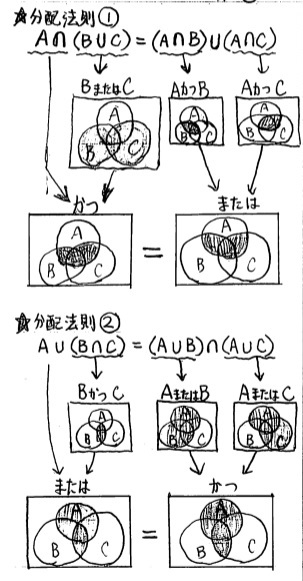 ☆分配法則①
A∩(B∪C)=(A∩B)∪(A∩C)
BまたはC AかつB AかつC
A A A
B C B C B C
かつ または
A = A
B C B C
☆分配法則②
A∪(B∩C)=(A∪B)∩(A∪C)
BかつC AまたはB AまたはC
A A A
B C B C B C
または かつ
A = A
B C B C